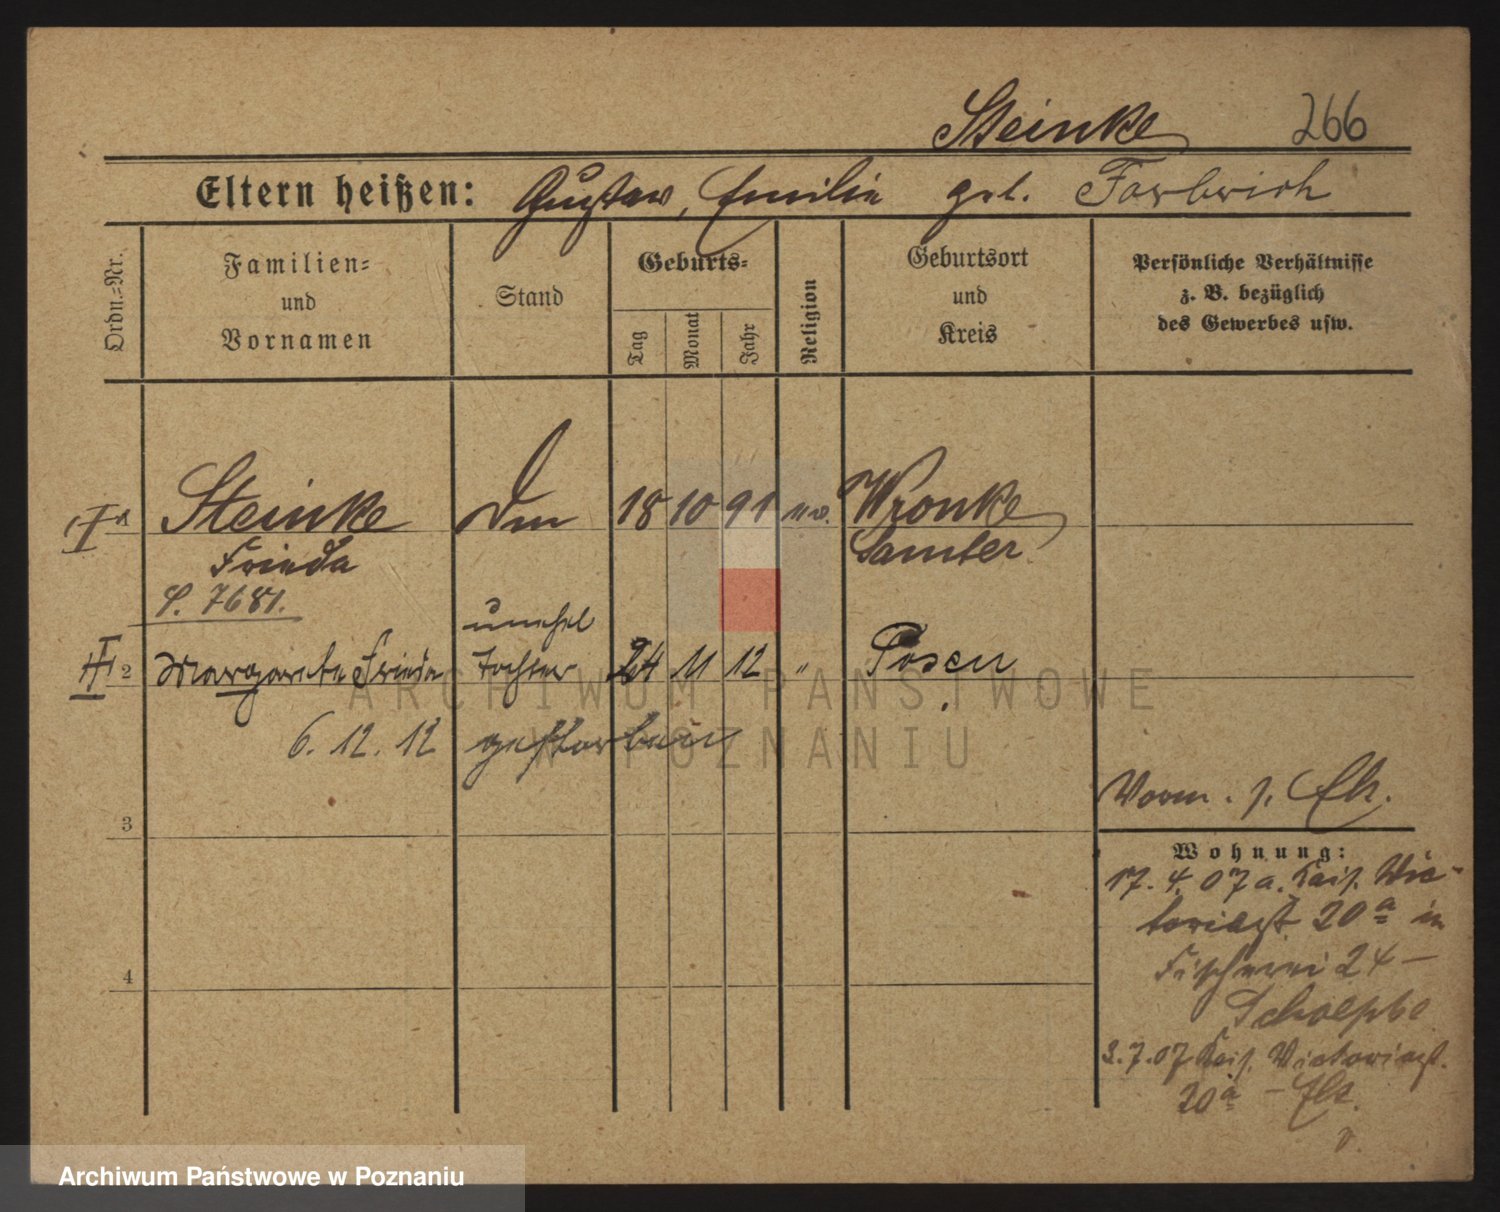 Steinke 266
Eltern heißen: Gustav, Emilie geb. Farbrich
Ordn.-Nr.
Familien-
und
Vornamen
Stand
Geburts-
Tag
Monat
Jahr
Religion
Geburtsort
und
Kreis
Persönliche Verhältnisse
z. B. bezüglich
des Gewerbes usw.
1 Steinke 18 10 91 Wronke
Frieda Samter
7681.
unehel
2 Margarete Frieda Tochter 24 11 12 " Posen
6. 12. 12 gestorben
3
Vorm. f. Eh.
Wohnung:
17. 4. 07 a. Kais. Vic-
toriast 20a in
Fischerei 24 –
4
3. 7. 07 Kais. Victoriast.
20a –
Archiwum Państwowe w Poznaniu
ARCHIWUM PAŃSTWOWE
W POZNANIU